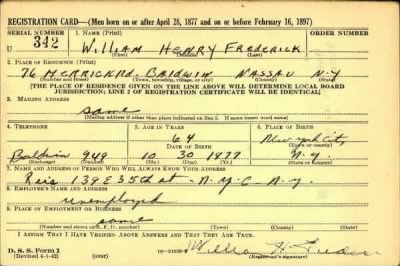 REGISTRATION CARD—(Men born on or after April 28, 1877 and on or before February 16, 1897)
SERIAL NUMBER 1. NAME (Print) ORDER NUMBER
U 342 WILLIAM HENRY FREDERICK
(First) (Middle) (Last)
2. PLACE OF RESIDENCE (Print)
76 MERRICK RD. BALDWIN NASSAU N.Y
(Number and street) (Town, township, village, or city) (County) (State)
[THE PLACE OF RESIDENCE GIVEN ON THE LINE ABOVE WILL DETERMINE LOCAL BOARD
JURISDICTION; LINE 2 OF REGISTRATION CERTIFICATE WILL BE IDENTICAL]
3. MAILING ADDRESS
same
[Mailing address if other than place indicated on line 2. If same insert word same]
4. TELEPHONE 5. AGE IN YEARS 6. PLACE OF BIRTH
64 New York City
DATE OF BIRTH (Town or county)
Baldwin 948 10 30 1877 N.Y.
(Exchange) (Number) (Mo.) (Day) (Yr.) (State or country)
7. NAME AND ADDRESS OF PERSON WHO WILL ALWAYS KNOW YOUR ADDRESS
139 E 35th st - N.Y.C - N.Y.
8. EMPLOYER'S NAME AND ADDRESS
unemployed
9. PLACE OF EMPLOYMENT OR BUSINESS
same
(Number and street or R. F. D. number) (Town) (County) (State)
I AFFIRM THAT I HAVE VERIFIED ABOVE ANSWERS AND THAT THEY ARE TRUE.
D. S. S. Form 1
(Revised 4-1-42) (over) William H.
(Registrant's signature)